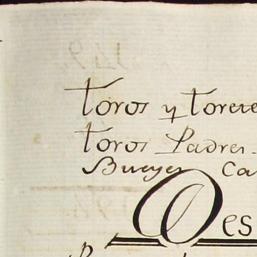 Toros y Torere
Toros Padres.
Bueyes Ca
Oes